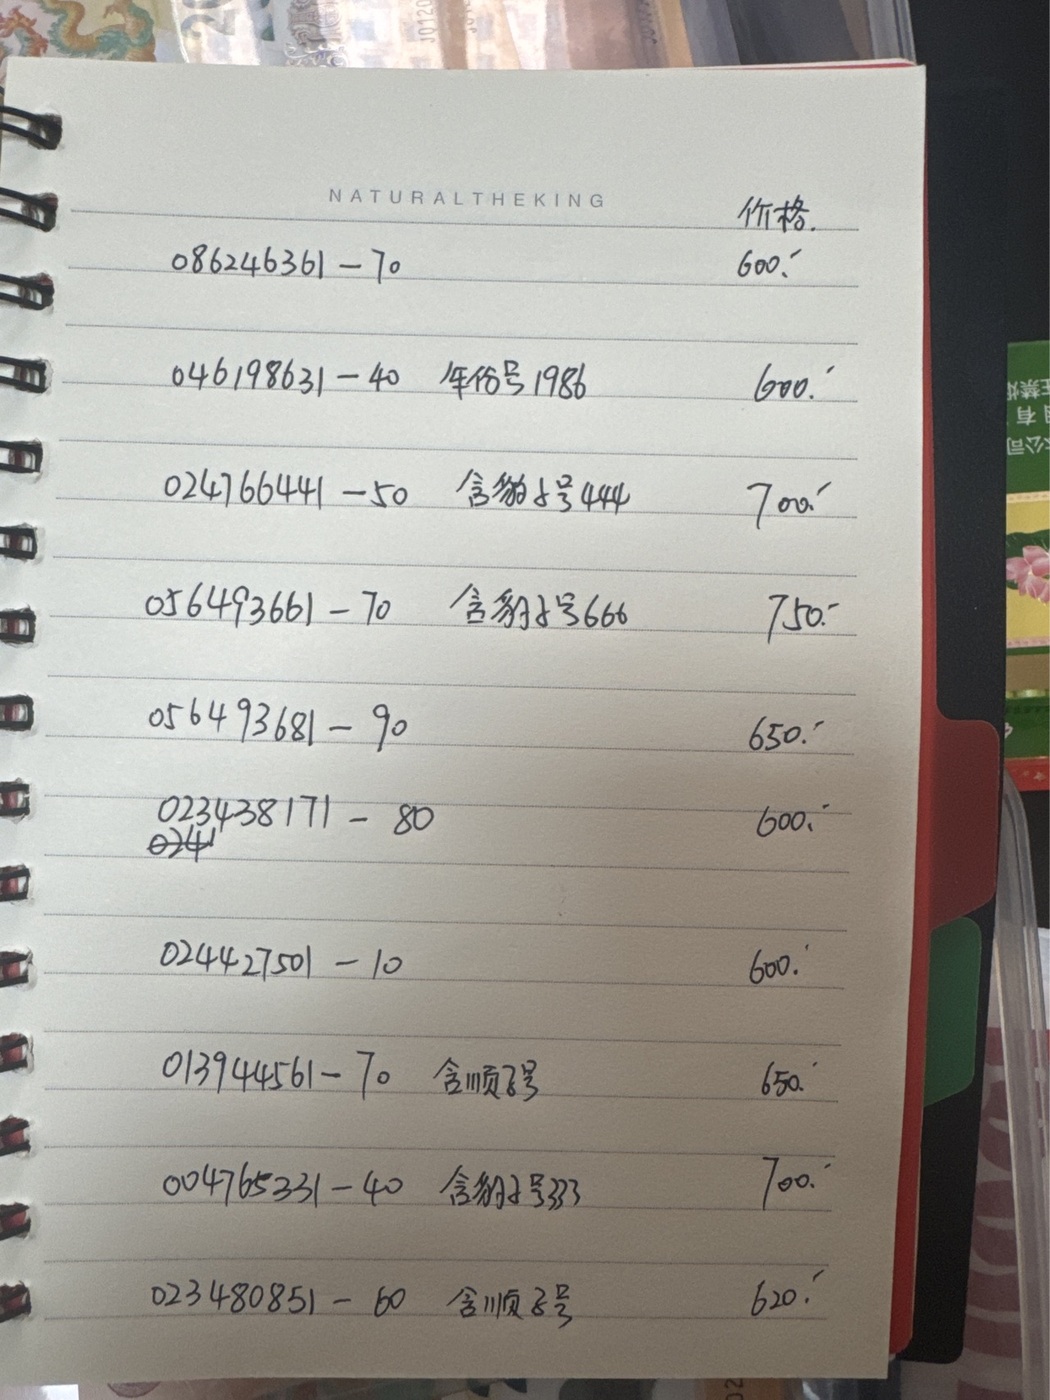 NATURALTHEKING
价格.
086246361-70 600.
046198631-40 年份号1986 600.
024766441-50 含豹子号444 700.
056493661-70 含豹子号666 750.
056493681-90 650.
023438171-80 600.
024427501-10 600.
013944561-70 含顺子号 650.
004765331-40 含豹子号333 700.
023480851-60 含顺子号 620.